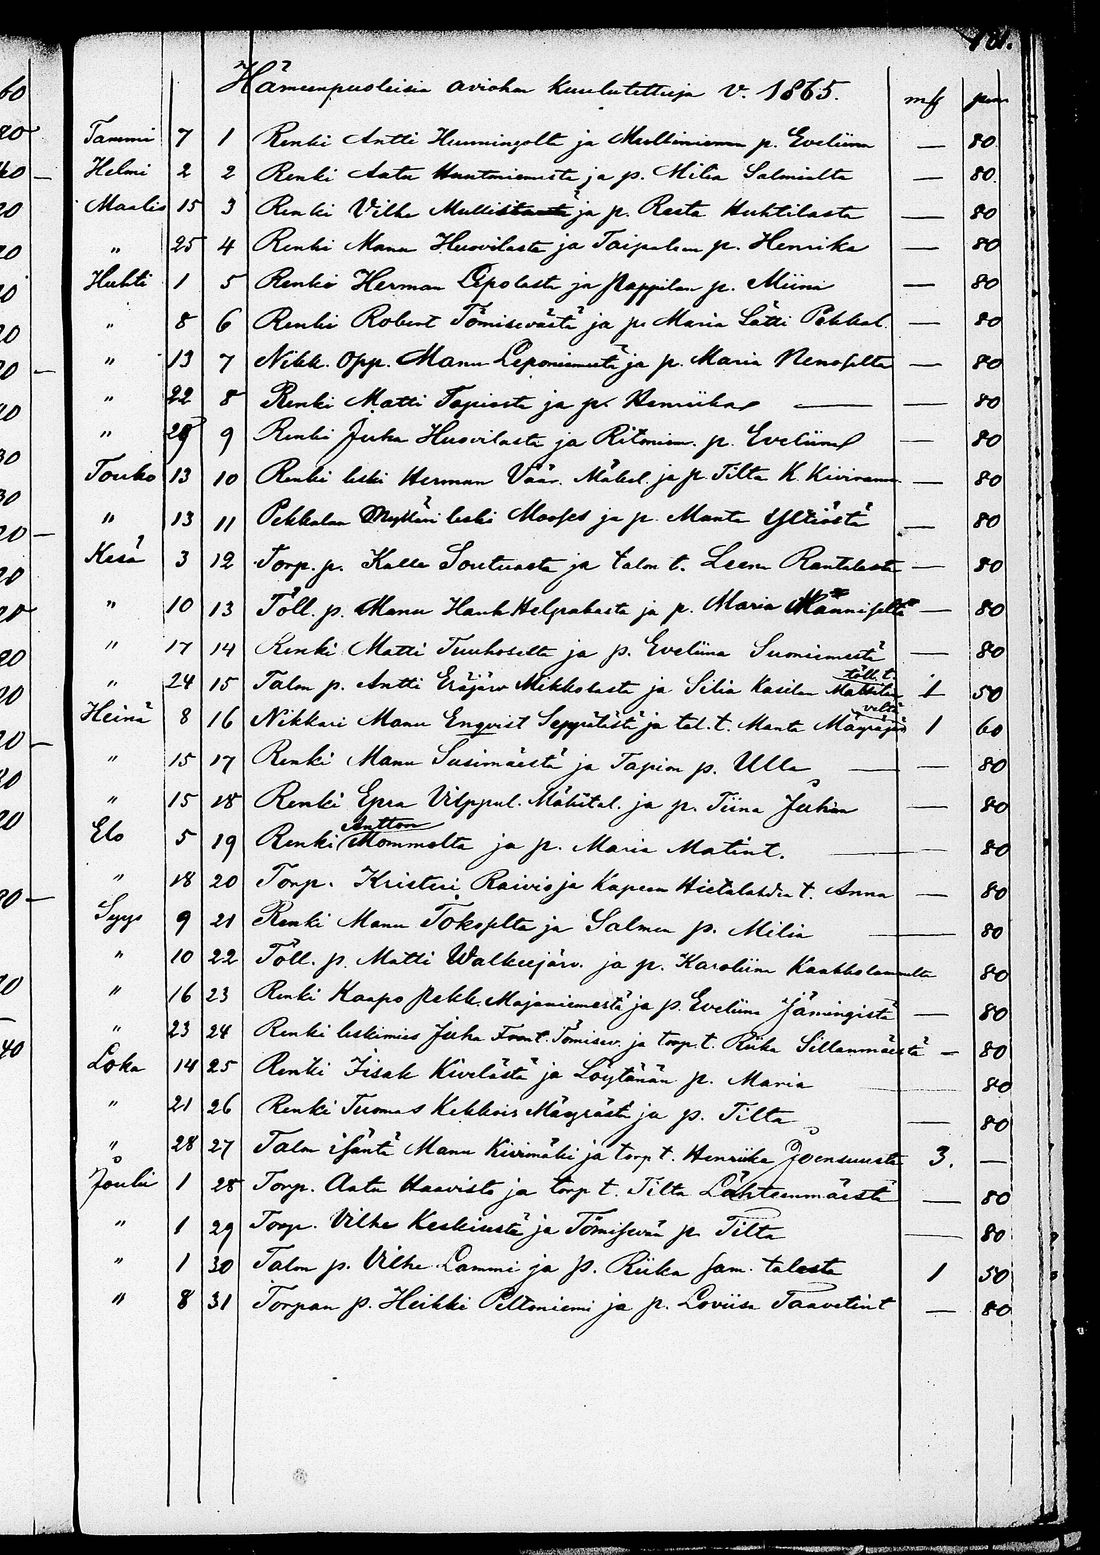 Hämeenpuoleisia aviohon kuulutettuja v. 1865. mk pen
Tammi 7 1 Renki Antti Hunningolta ja p. Eveliina — 80
Helmi 2 2 Renki Aatu Huntniemestä ja p. Milia Salmialta — 80
Maalis 15 3 Renki Vilhe ja p. Resta Huhtilasta — 80
" 25 4 Renki Manu Husvilasta ja Taipaleen p. Henrika — 80
Huhti 1 5 Renki Herman Lepolasta ja Pappilan p. Miina — 80
" 8 6 Renki Robert Tömisevästä ja p. Maria Lätti Pekkal. — 80
" 13 7 Nikk. Opp. Manu Leponiemestä ja p. Maria — 80
" 22 8 Renki Matti Tapiosta ja p. Henriika — — 80
" 29 9 Renki Juha Husvilasta ja Ritonien. p. Eveliina — 80
Touko 13 10 Renki leski Herman Väär. Mäkel. ja p. Tilta K. — 80
" 13 11 Pekkalan Mylläri leski Mooses ja p. Manta Yltiästä — 80
Kesä 3 12 Torp. p. Kalle ja talon t. Leena Rantalasta — 80
" 10 13 Töll. p. Manu ja p. Maria Männiseltä — 80
" 17 14 Renki Matti Tuuhoselta ja p. Eveliina Suoniemestä — 80
töll. t.
" 24 15 Talon p. Antti Eräjärv Mikkolasta ja Silia Kasilan 1 50
Heinä 8 16 Nikkari Manu Enqvist Seppälästä ja tal. t. Manta 1 60
" 15 17 Renki Manu Susimäestä ja Tapion p. Ulla — — 80
" 15 18 Renki Epra Vilppul. Mäkital. ja p. Tiina Juhan — 80
Antton
Elo 5 19 Renki Mommolta ja p. Maria Matint. — 80
" 18 20 Torp. Kristeri Raivio ja Kapeen Hietalahden t. Anna — 80
Syys 9 21 Renki Manu Tokoselta ja Salmen p. Milia — 80
" 10 22 Töll. p. Matti Walkeejärv. ja p. Karoliina 80
" 16 23 Renki Kaapo Pekk. Majaniemestä ja p. Eveliina Jämingistä — 80
" 23 24 Renki leskimies Juha Tömisev. ja torp. t. Riika Sillanmäestä — 80
Loka 14 25 Renki Iisak Kivelästä ja Löytänän p. Maria — 80
" 21 26 Renki Tuomas Kekkois Mäyrästä ja p. Tilta — 80
" 28 27 Talon isäntä Manu Kivimäki ja torp t. Henriika Joensuusta 3. —
Joulu 1 28 Torp. Aatu Haavisto ja torp t. Tilta Lähteenmäestä — 80
" 1 29 Torp. Vilhe Keskisestä ja Tömisevän p. Tilta — 80
" 1 30 Talon p. Vilhe Lammi ja p. Riika sam. talosta 1 50
" 8 31 Torpan p. Heikki Peltoniemi ja p. Loviisa Taavetint — 80